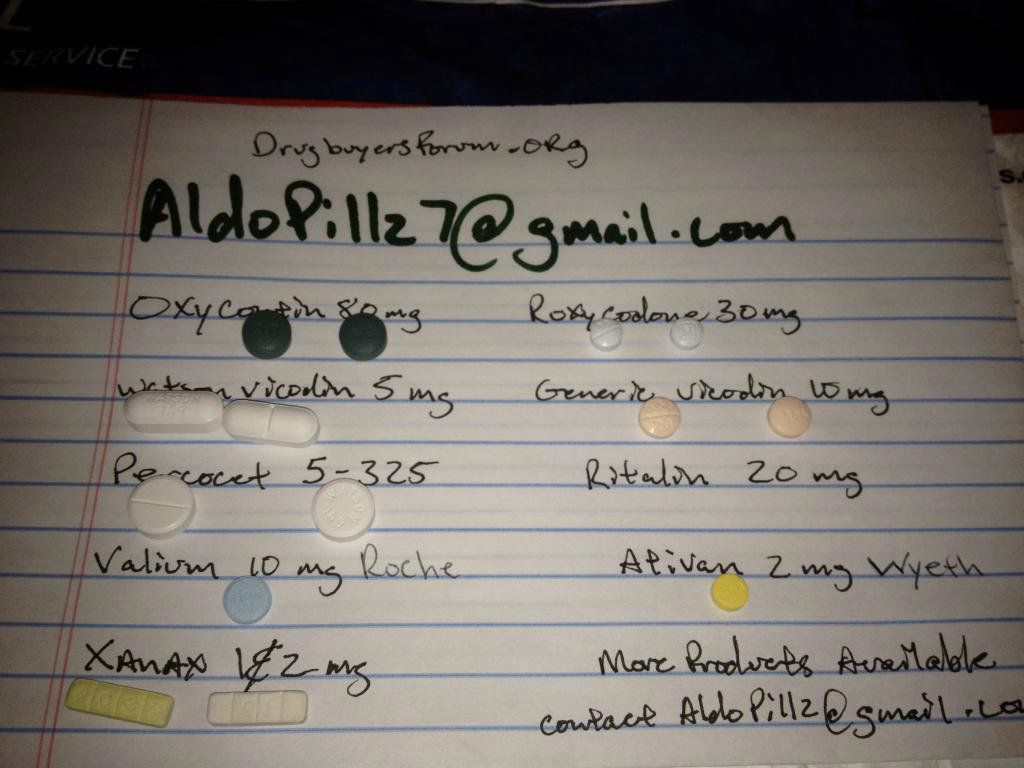 SERVICE
Drugbuyersforum.org
AldoPillz7@gmail.com
Oxycontin 80mg Roxycodone 30mg
Watson vicodin 5 mg Generic vicodin 10mg
Percocet 5-325 Ritalin 20 mg
Valium 10 mg Roche Ativan 2mg Wyeth
XANAX 1&2 mg More Products Available
contact AldoPillz@gmail.co